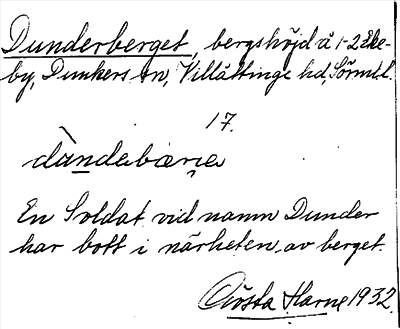 Dunderberget, bergshöjd å 1-2 Eke-
by, Dunkers sn, Villåttinge hd, Sörml.
17.
dùndəbærjə
En Soldat vid namn Dunder
har bott i närheten av berget.
Gösta Harne 1932.